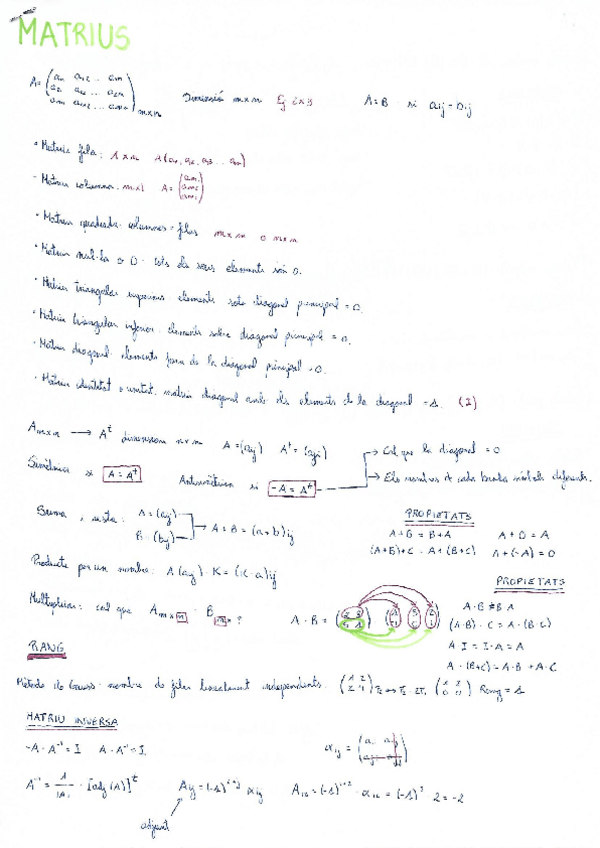 MATRIUS
A= (a11 a12 ... a1n
a21 a22 ... a2n
am1 am2 ... amn) mxn Dimensió mxn Ej 2x3 A=B si aij=bij
• Matriu fila: 1xn A(a11, a12, a13 ... a1n)
- Matriu columna: mx1 A=
• Matriu quadrada: columnes = files mxm o nxn
• Matriu nul·la o 0: tots els seus elements són 0.
• Matriu triangular superior: elements sota diagonal principal = 0.
• Matriu triangular inferior: elements sobre diagonal principal = 0.
• Matriu diagonal: elements fora de la diagonal principal = 0.
• Matriu identitat o unitat: matriu diagonal amb els elements de la diagonal = 1. (I)
Amxn → At dimensions nxm A=(aij) At=(aji)
Simètrica si A=At Antisimètrica si -A=At → Cal que la diagonal = 0
→ Els nombres a cada banda siguin diferents.
Suma i resta: A=(aij)
B=(bij) → A+B=(a+b)ij
PROPIETATS
A+B=B+A A+0=A
(A+B)+C=A+(B+C) A+(-A)=0
Producte per un nombre: A(aij)·K=(K·a)ij
PROPIETATS
Multiplicar: cal que Amxn · Bnx? A·B=
A·B≠B·A
(A·B)·C=A·(B·C)
A·I=I·A=A
A·(B+C)=A·B+A·C
RANG
Mètode de Gauss: nombre de files linealment independents. Rang = 1
MATRIU INVERSA
-A·A-1=I A·A-1=I. αij=
A-1= 1/|A| · [adj(A)]t Aij=(-1)i+j αij A12=(-1)1+2·α12=(-1)3·2=-2
adjunt